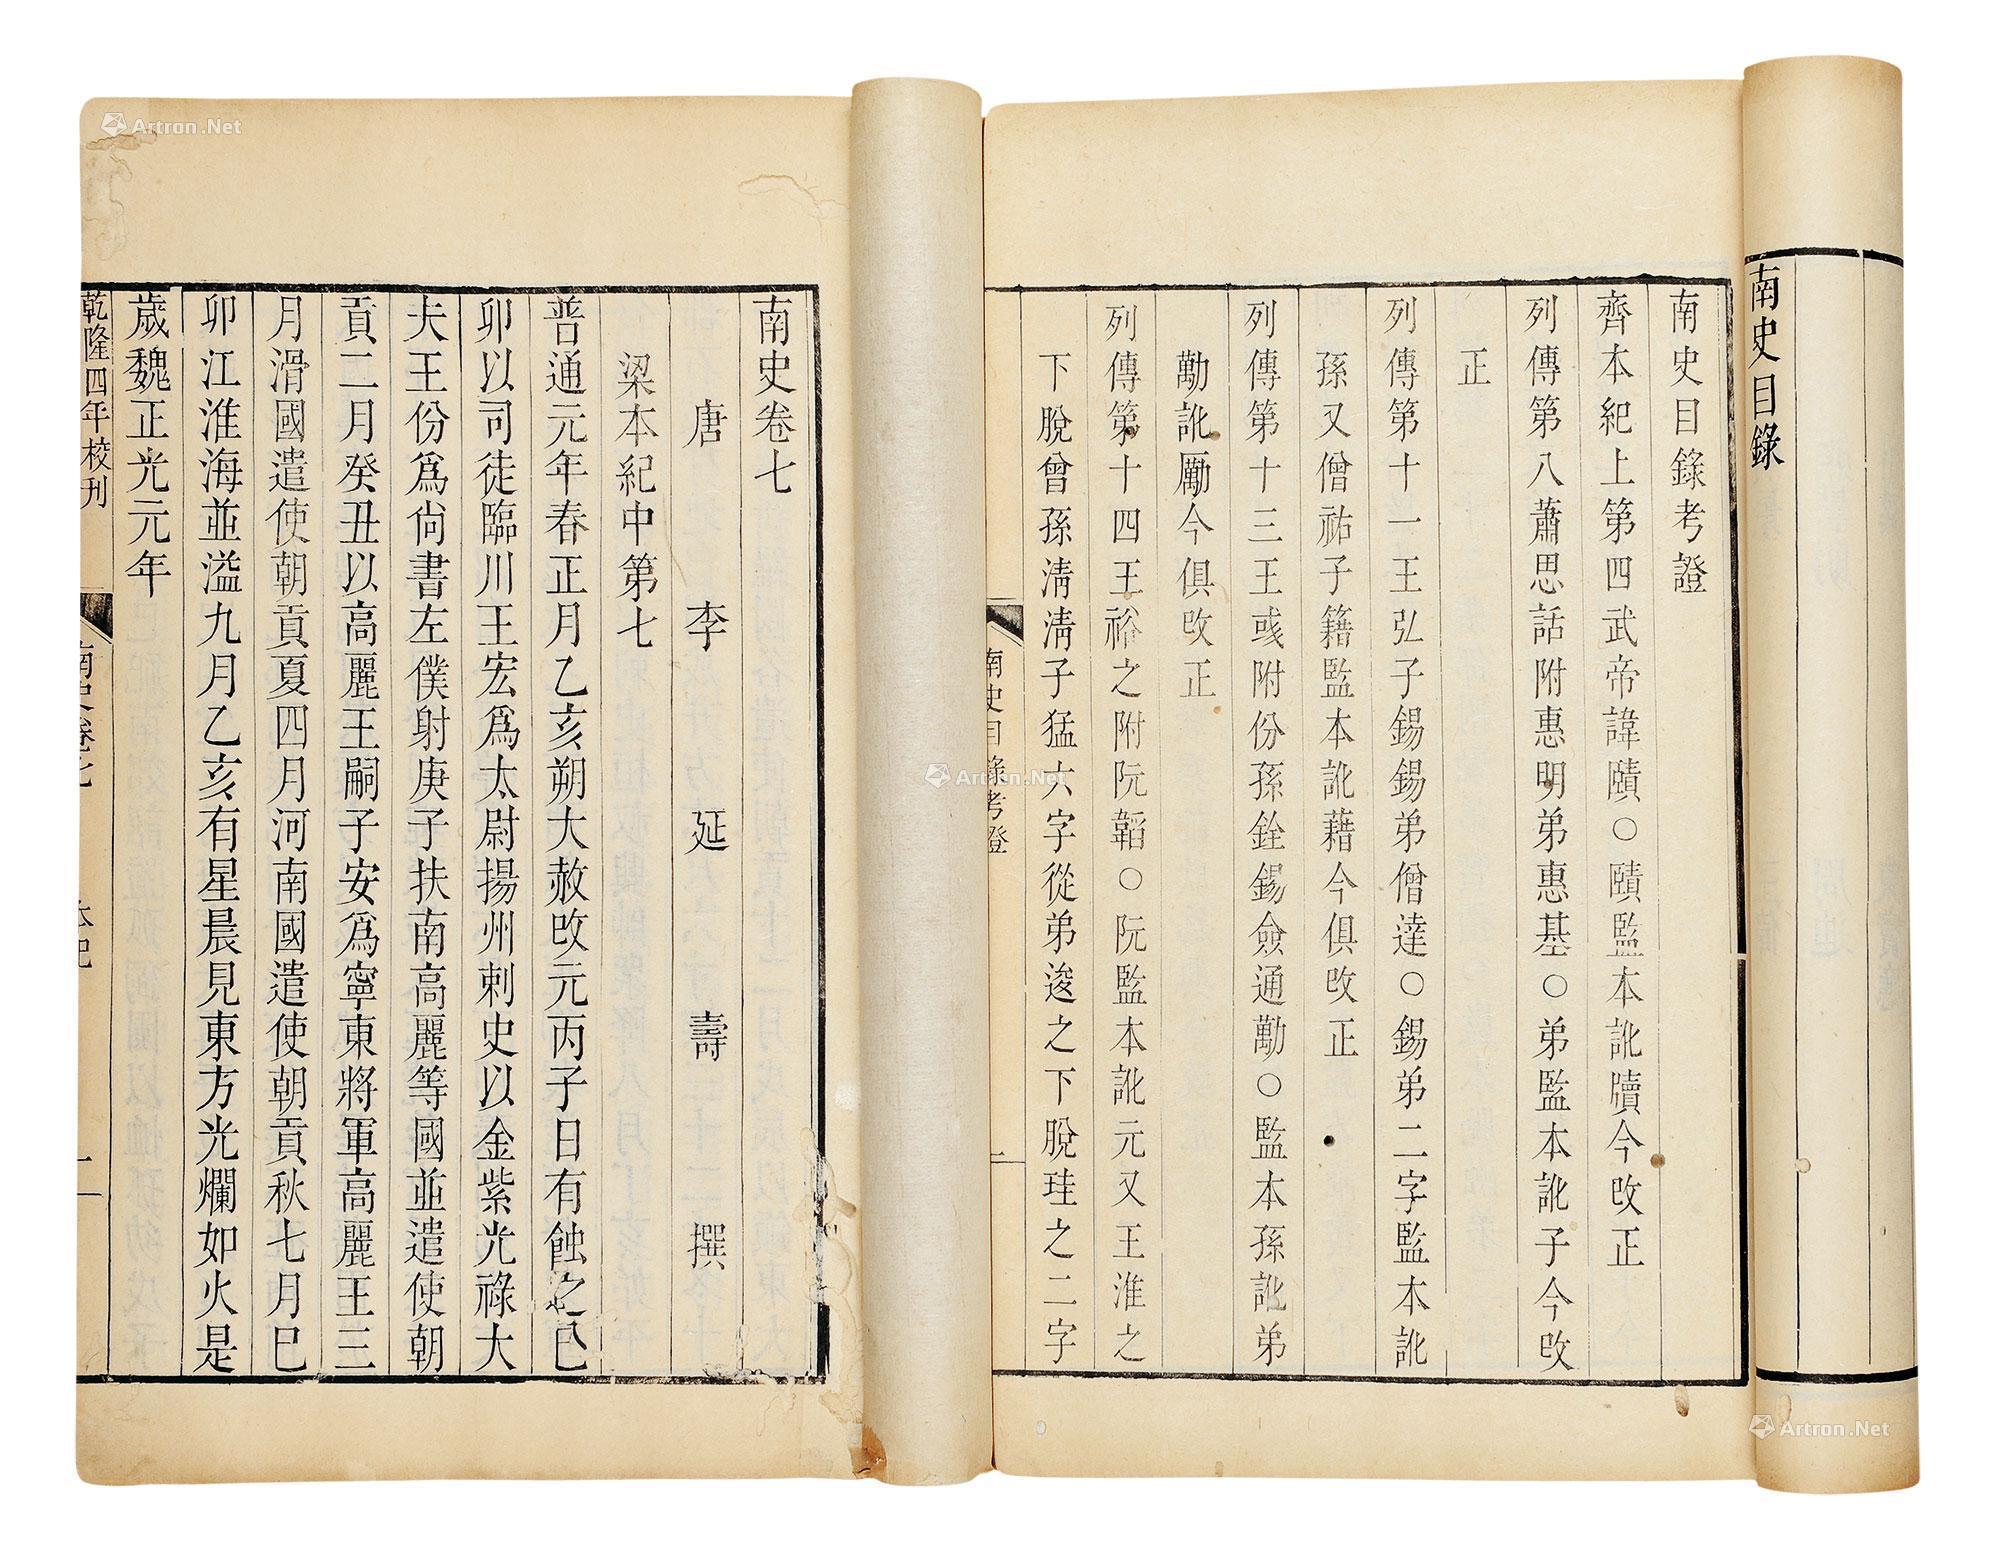 南史目錄
南史目錄考證
齊本紀上第四武帝諱賾○賾監本訛牘今改正
列傳第八蕭思話附惠明弟惠基○弟監本訛子今改
正
列傳第十一王弘子錫錫弟僧達○錫弟二字監本訛
孫又僧祐子籍監本訛藉今俱改正
列傳第十三王彧附份孫銓錫僉通勱○監本孫訛弟
勱訛勵今俱改正
列傳第十四王裕之附阮韜○阮監本訛元又王淮之
下脫曾孫淸淸子猛六字從弟逡之下脫珪之二字
南史目錄考證
一
南史卷七
唐李延壽撰
梁本紀中第七
普通元年春正月乙亥朔大赦改元丙子日有蝕之己
卯以司徒臨川王宏爲太尉揚州刺史以金紫光祿大
夫王份爲尙書左僕射庚子扶南高麗等國並遣使朝
貢二月癸丑以高麗王嗣子安爲寧東將軍高麗王三
月滑國遣使朝貢夏四月河南國遣使朝貢秋七月己
卯江淮海並溢九月乙亥有星晨見東方光爛如火是
歲魏正光元年
乾隆四年校刊
南史卷七
本紀
一
Artron.Net
Artron.Net
Artron.Net